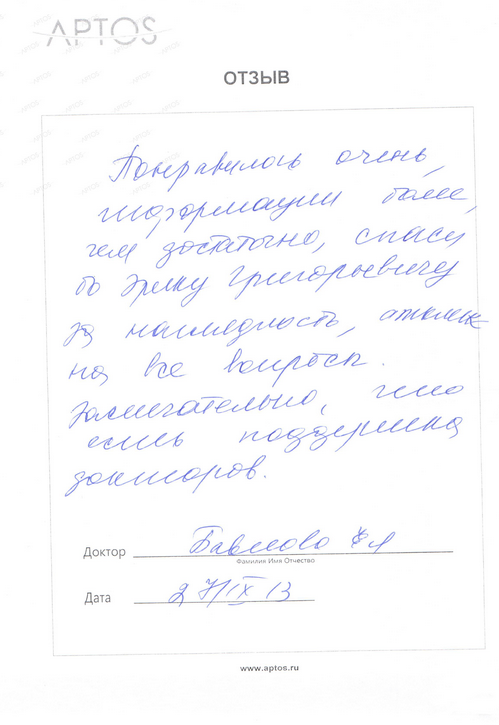 APTOS
ОТЗЫВ
Понравилось очень,
информации более,
чем достаточно, спаси
бо Эрику Григорьевичу
за наглядность,
на все вопросы.
Замечательно, что
есть поддержка
докторов.
Доктор
Фамилия Имя Отчество
Дата 27/IX 13
www.aptos.ru